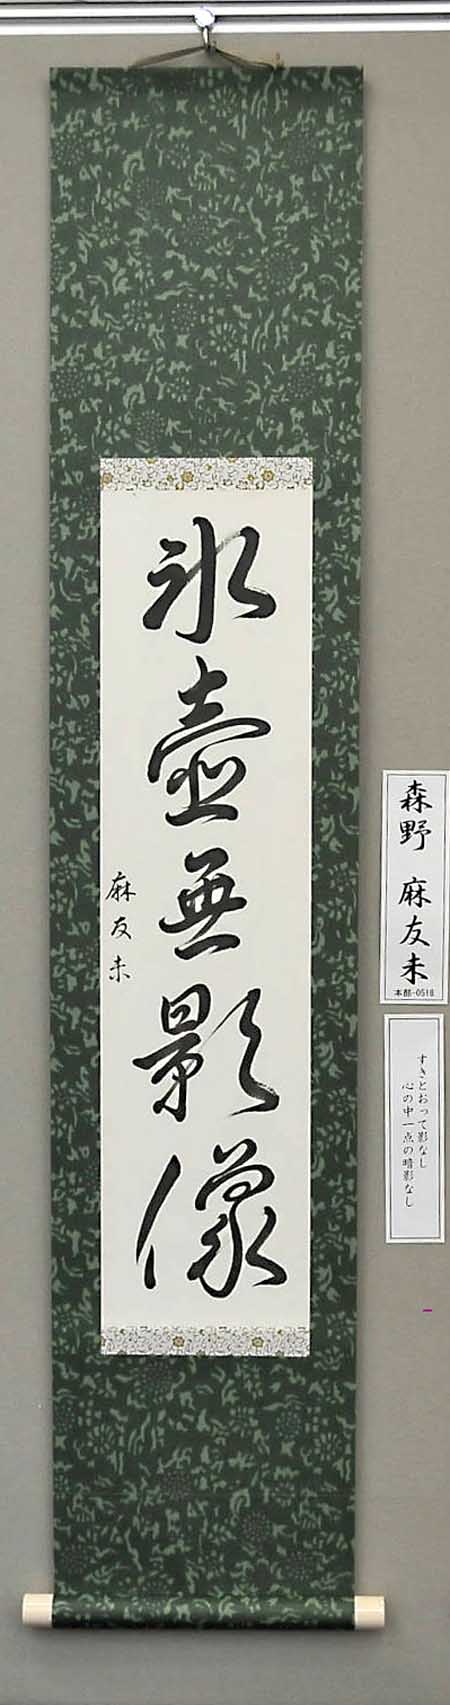 氷壺無影像
麻友未
森野 麻友未
本部-0518
すきとおって影なし
心の中一点の暗影なし